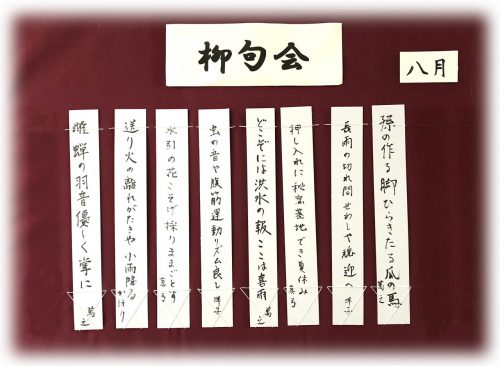 柳句会
八月
孫の作る脚ひらきたる瓜の馬 萬之
長雨の切れ間せわしや魂迎へ 洋子
押し入れに秘密基地でき夏休み
どこぞには洪水の報ここは喜雨 萬之
虫の音や腹筋運動リズム良し 洋子
水引の花こそげ採りままごとす
送り火の離れがたきや小雨降る かほり
雌蝉の羽音優しく掌に 萬之